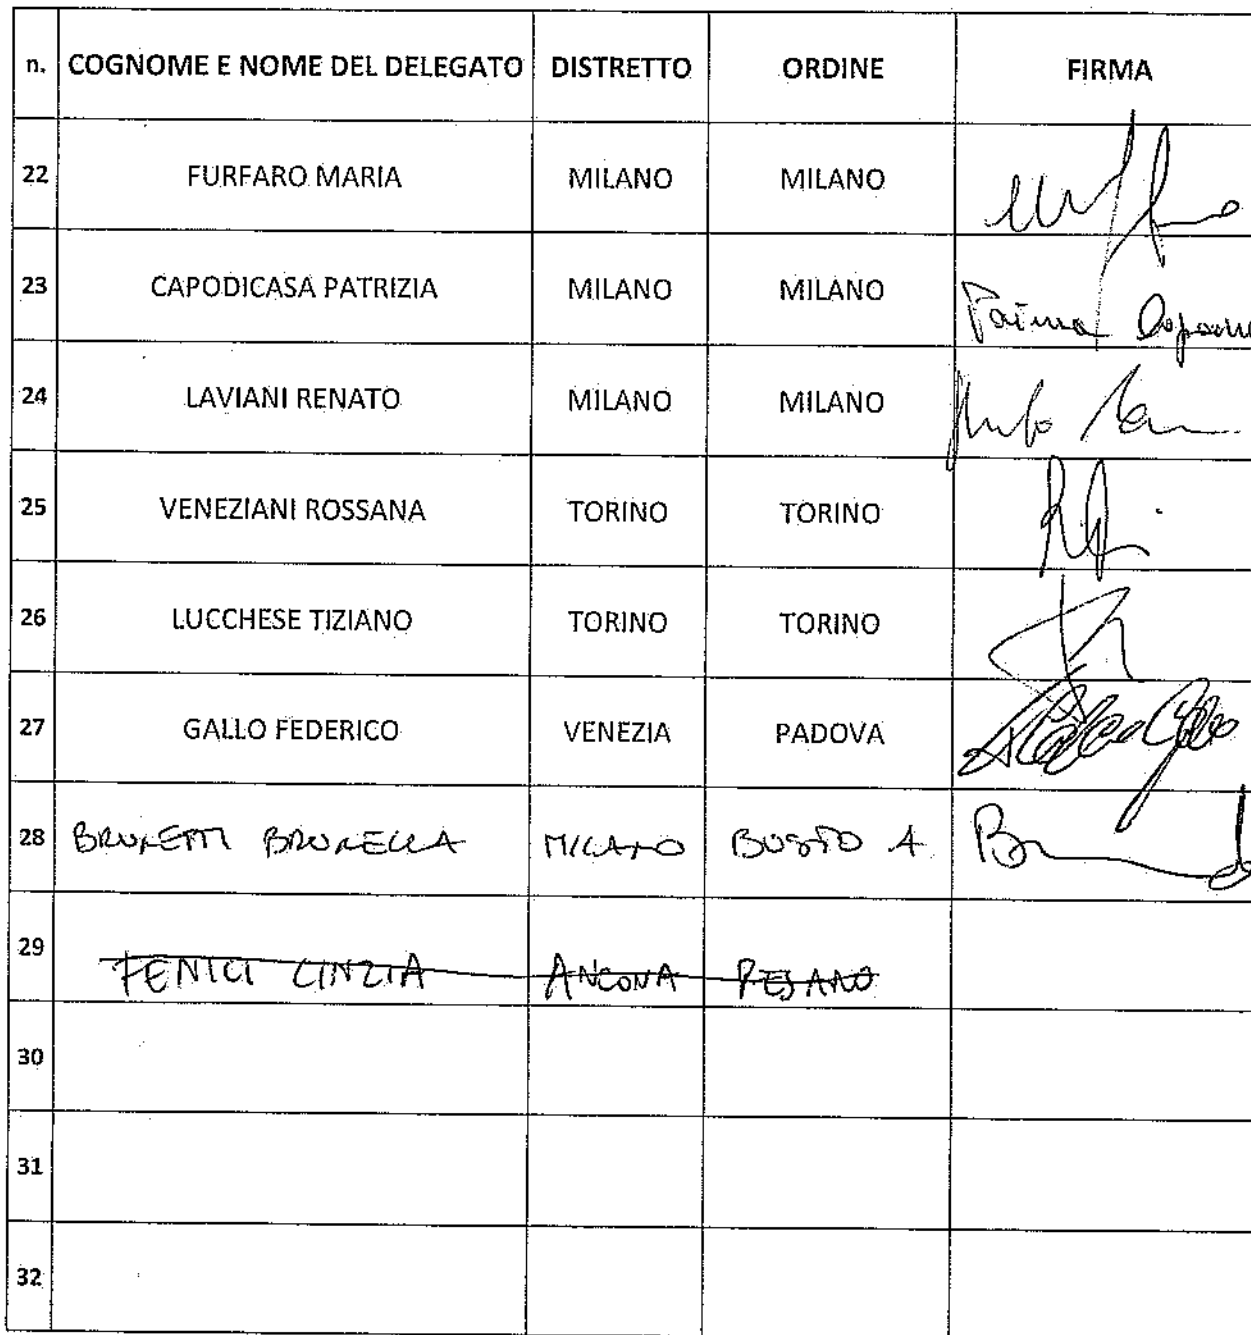 n. COGNOME E NOME DEL DELEGATO DISTRETTO ORDINE FIRMA
22 FURFARO MARIA MILANO MILANO
23 CAPODICASA PATRIZIA MILANO MILANO
24 LAVIANI RENATO MILANO MILANO
25 VENEZIANI ROSSANA TORINO TORINO
26 LUCCHESE TIZIANO TORINO TORINO
27 GALLO FEDERICO VENEZIA PADOVA
28 BRUNETTI BRUNELLA MILANO BUSTO A.
29 FENICI CINZIA ANCONA PESARO
30
31
32